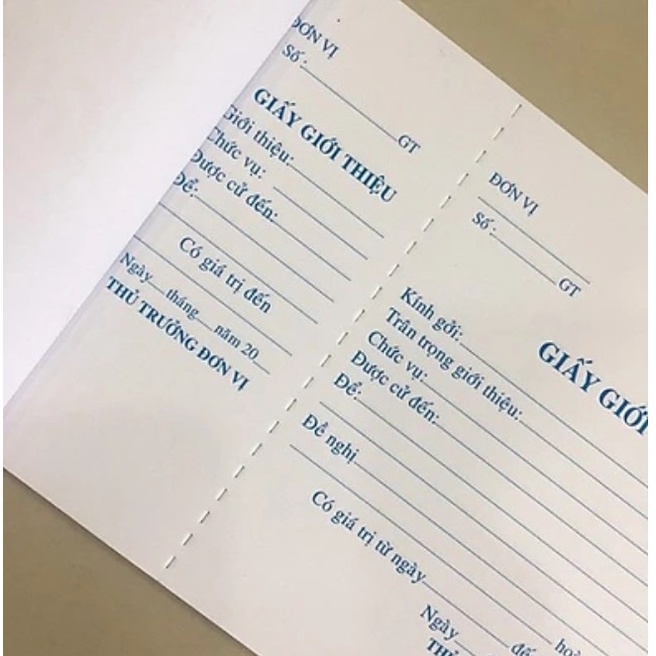 ĐƠN VỊ
Số: GT
GIẤY GIỚI THIỆU
Giới thiệu:
Chức vụ:
Được cử đến:
Để:
Có giá trị đến
Ngày tháng năm 20
THỦ TRƯỞNG ĐƠN VỊ
ĐƠN VỊ
Số: GT
GIẤY GIỚI
Kính gởi:
Trân trọng giới thiệu:
Chức vụ:
Được cử đến:
Để:
Đề nghị
Có giá trị từ ngày
Ngày để